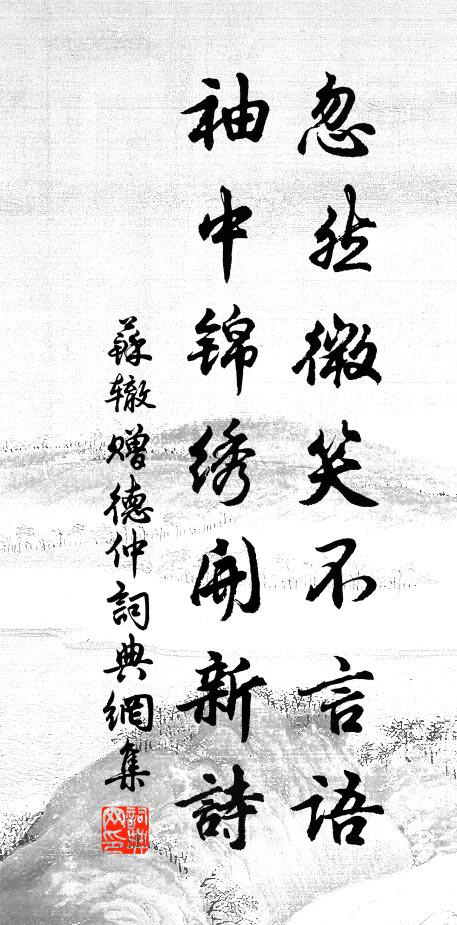 忽然微笑不言语
袖中锦绣開新詩
蘇辙赠德仲詞典網集